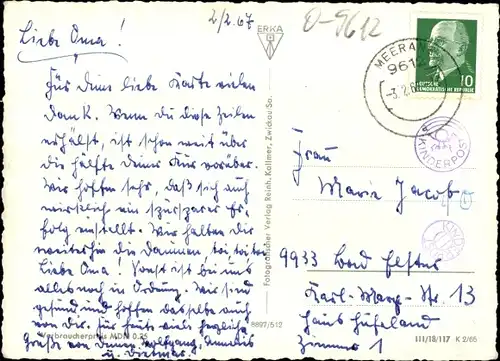 2/2.67
Liebe Oma!
Für Deine liebe Karte vielen
Dank. Wenn du diese Zeilen
erhälst, ist schon weit über
die Hälfte deiner Kur vorüber.
Wir hoffen sehr, daß sich auch
wirklich ein spürbarer Er-
folg einstellt. Wir halten dir
weiterhin die Daumen, toi toi toi
Liebe Oma! Sonst ist bei uns
alles noch in Ordnung. Wir sind
gesund und hoffen dasselbe auch
von dir. für heute viele herzliche
Grüße von Deinen Wolfgang,
u. Dietmar
Verbraucherpreis MDN 0,25
ERKA
Fotografischer Verlag Reinh. Kallmer, Zwickau Sa.
8897/512
0-9612
MEERANE
961
-3.2.6
DEUTSCHE
DEMOKRATISCHE REPUBLIK
10
KINDERPOST
Frau
Marie Jacob
9933 Bad Elster
Karl-Marx-Str. 13
Haus Hufeland
Zimmer 1
III/18/117 K 2/65